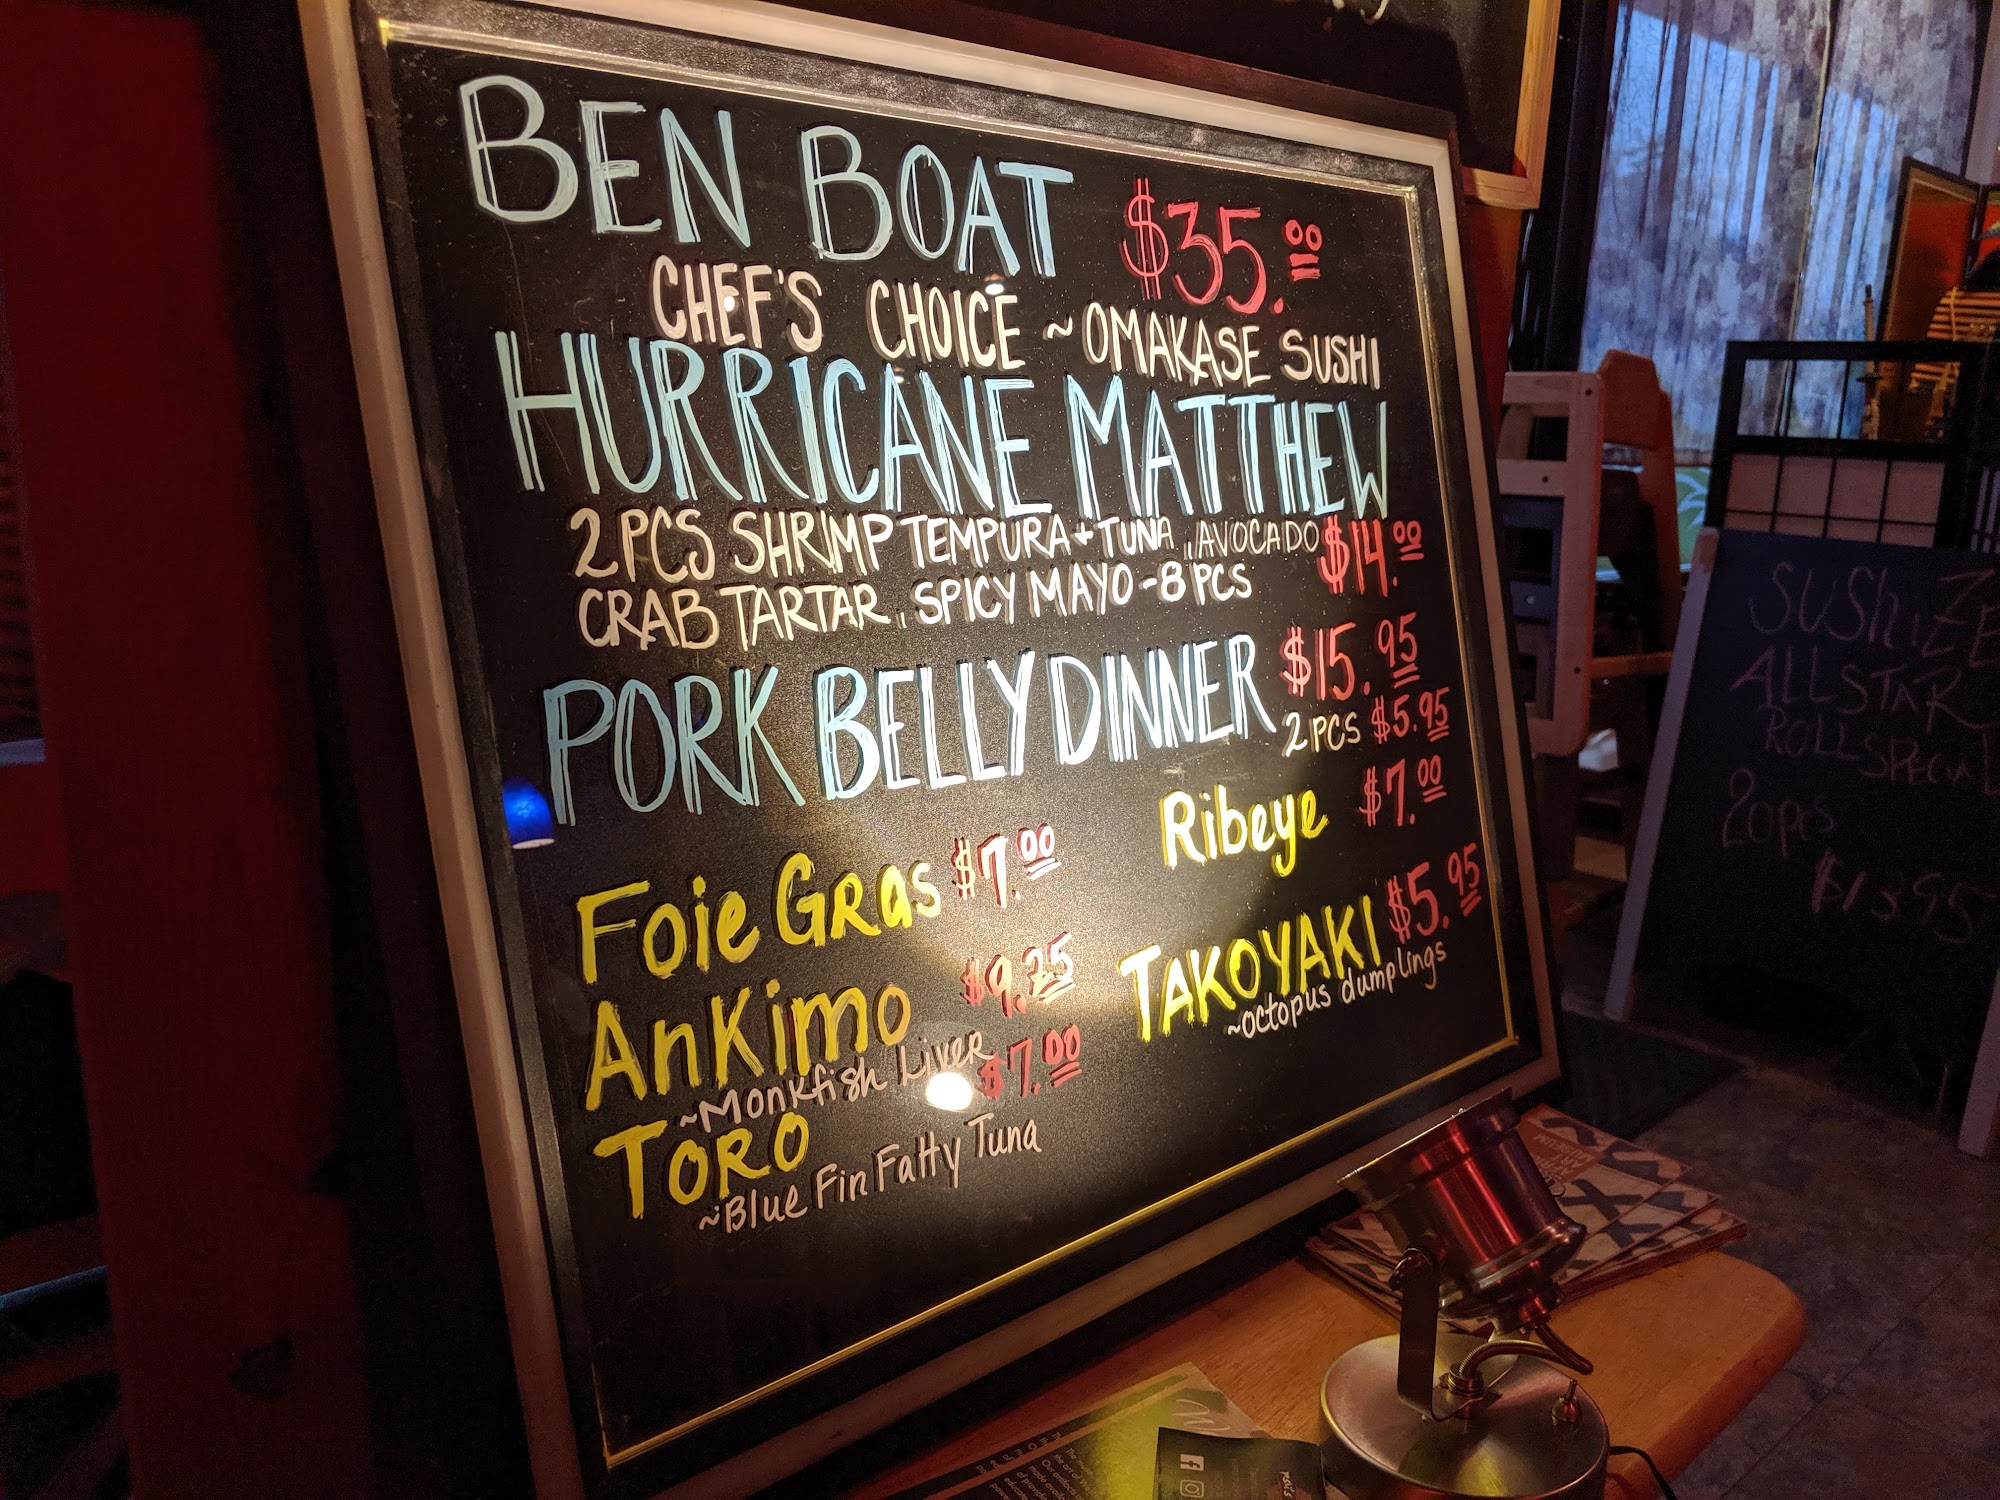 BEN BOAT $35.00
CHEF'S CHOICE ~ OMAKASE SUSHI
HURRICANE MATTHEW
2 PCS SHRIMP TEMPURA + TUNA, AVOCADO $14.00
CRAB TARTAR, SPICY MAYO - 8 PCS
PORK BELLY DINNER $15.95
2 PCS $5.95
Ribeye $7.00
Foie Gras $7.00
TAKOYAKI $5.95
~octopus dumplings
AnKimo $9.25
~Monkfish Liver
TORO $7.00
~Blue Fin Fatty Tuna
SUSHI
ALLSTAR
ROLL SPECIAL
20pcs
$13.95